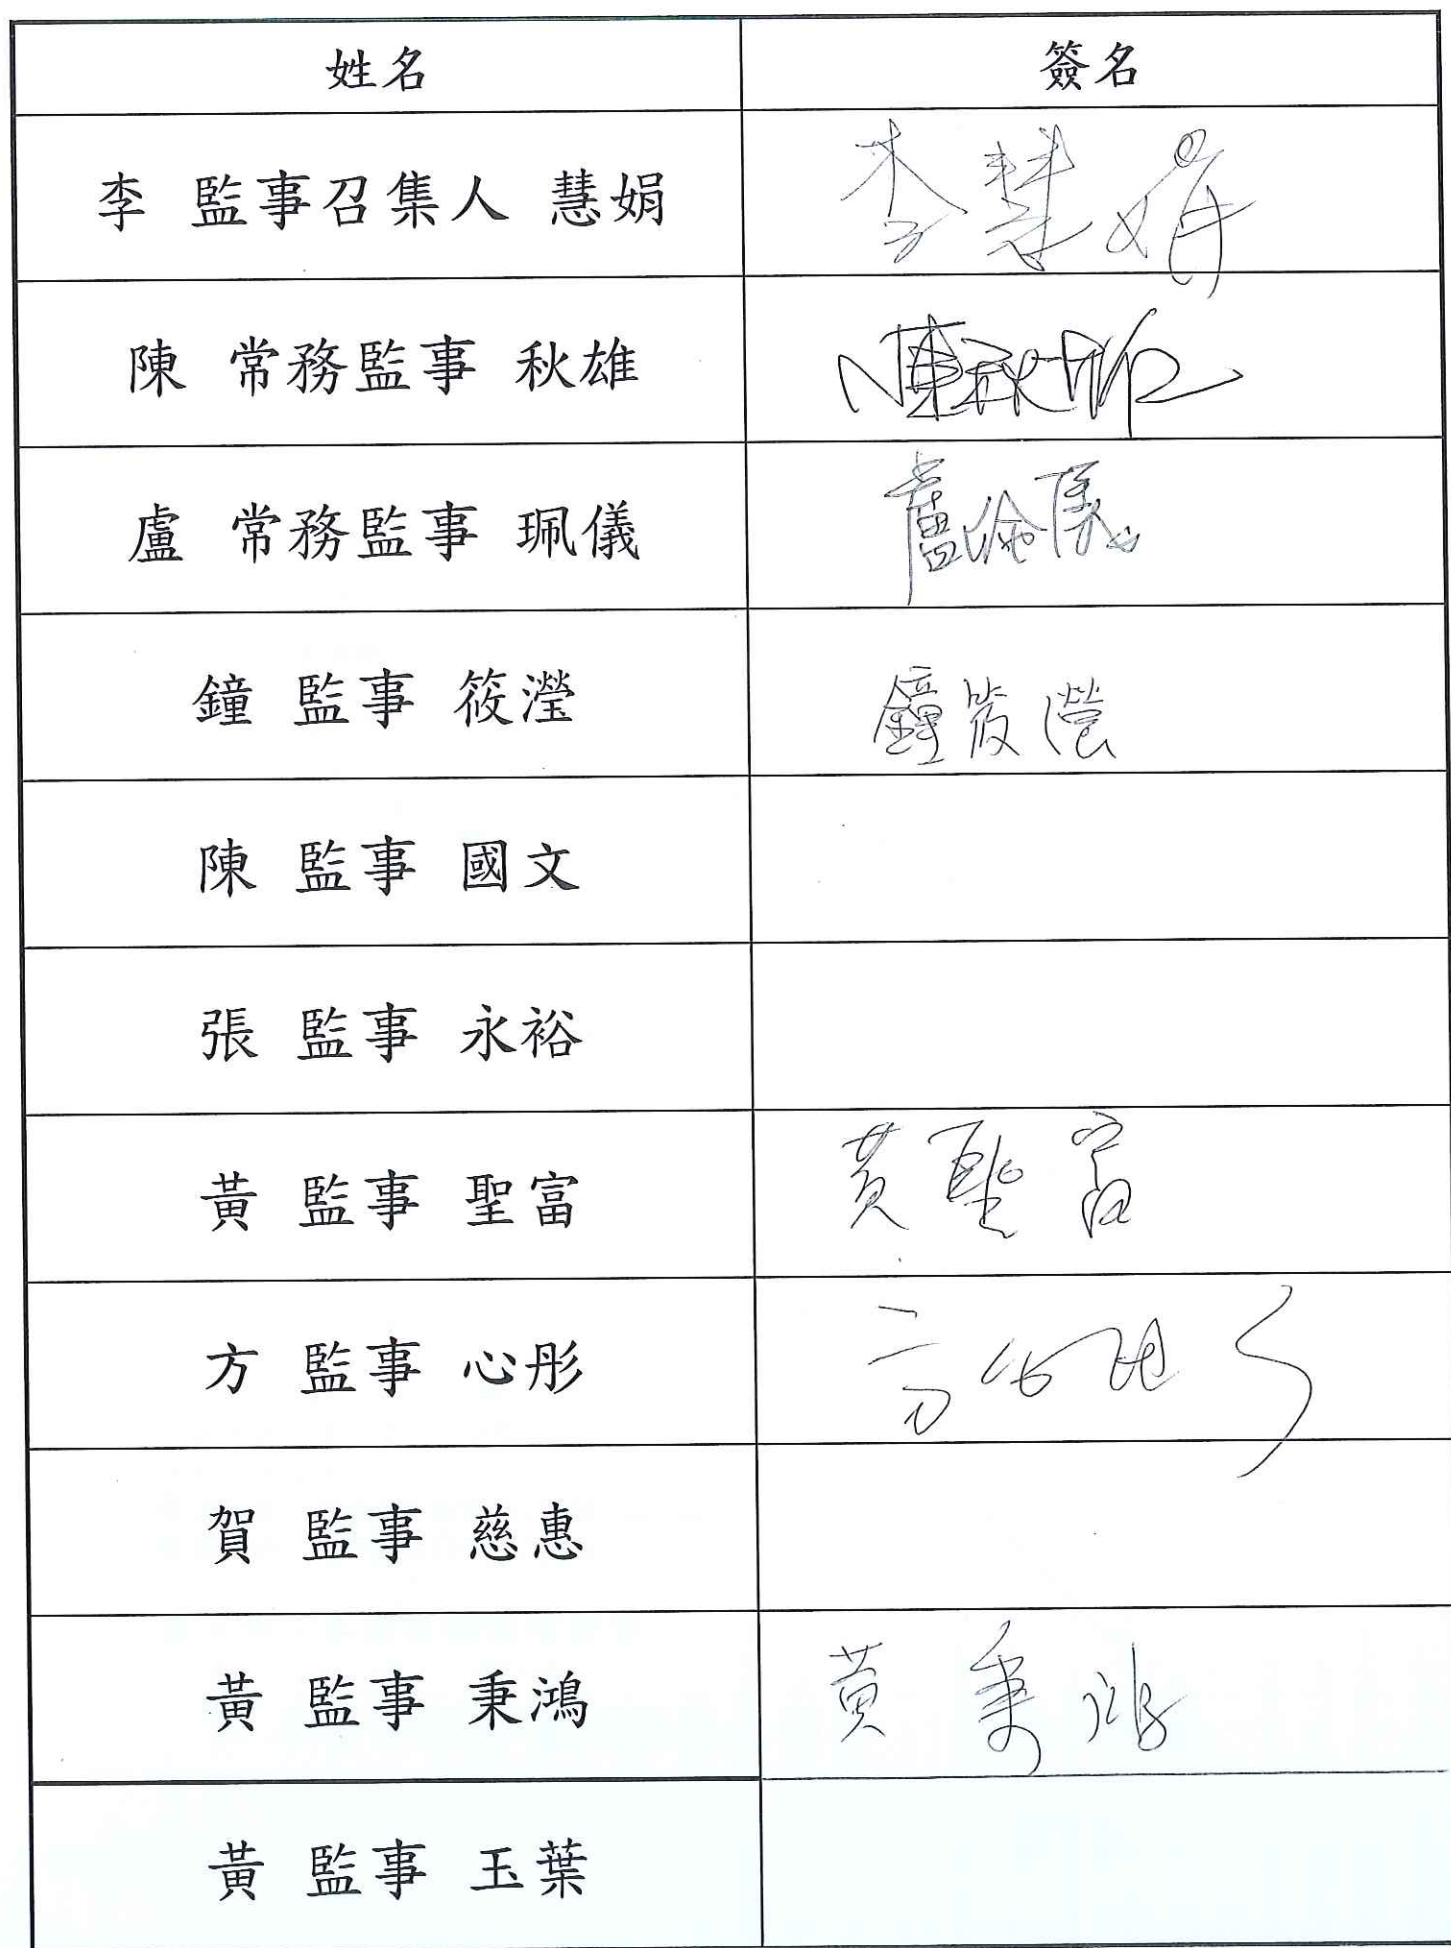 姓名 簽名
李 監事召集人 慧娟 李慧娟
陳 常務監事 秋雄 陳秋雄
盧 常務監事 珮儀 盧珮儀
鐘 監事 筱瀅 鐘筱瀅
陳 監事 國文
張 監事 永裕
黃 監事 聖富 黃聖富
方 監事 心彤 方心彤
賀 監事 慈惠
黃 監事 秉鴻 黃秉鴻
黃 監事 玉葉